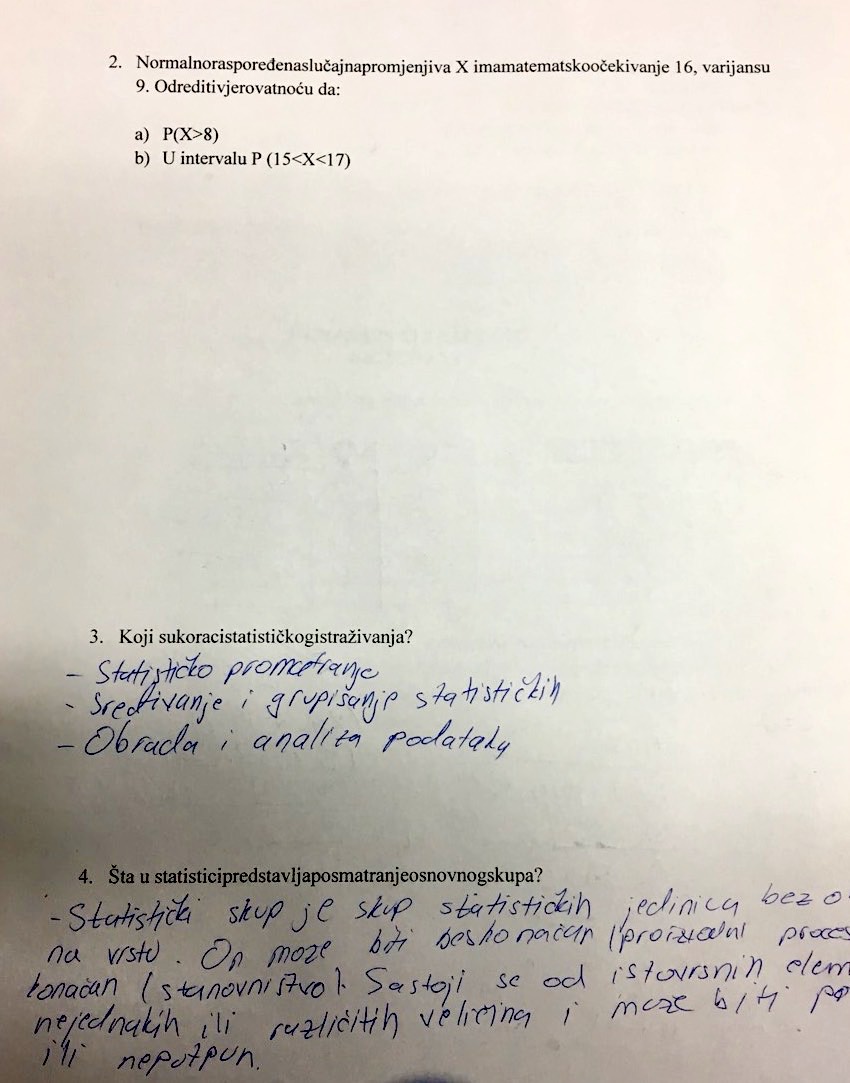 2. Normalnoraspoređenaslučajnapromjenjiva X imamatematskoočekivanje 16, varijansu
9. Odreditivjerovatnoću da:
a) P(X>8)
b) U intervalu P (15<X<17)
3. Koji sukoracistatističkogistraživanja?
- Statističko
- Sređivanje i grupisanje statističkih
- Obrada i analiza podataka
4. Šta u statisticipredstavljaposmatranjeosnovnogskupa?
- Statistički skup je skup statističkih jedinica bez o
na vrstu. On može biti beskonačan (proizvodni proces
konačan (stanovništvo). Sastoji se od istovrsnih elem
nejednakih ili različitih veličina i može biti po
ili nepotpun.